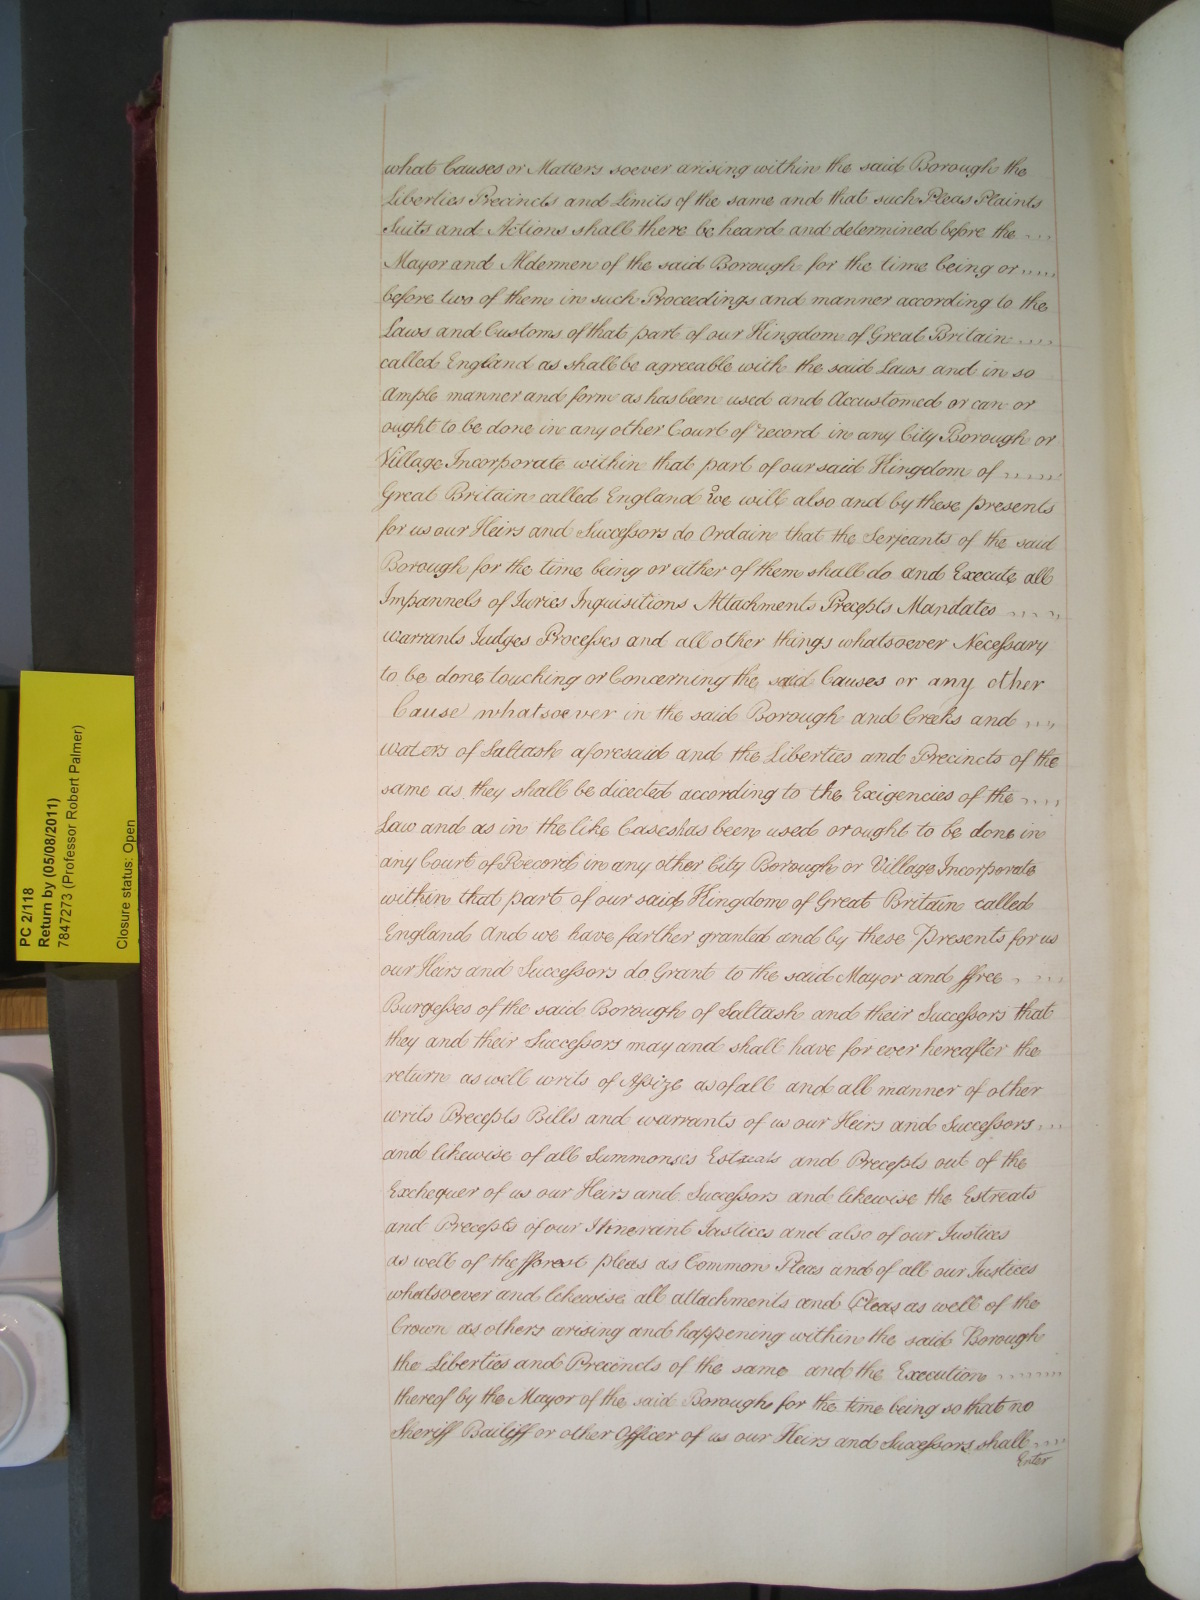 what Causes or Matters soever arising within the said Borough the
Liberties Precincts and Limits of the same and that such Pleas Plaints
Suits and Actions shall there be heard and determined before the ....
Mayor and Aldermen of the said Borough for the time being or .....
before two of them in such Proceedings and manner according to the
Laws and Customs of that part of our Kingdom of Great Britain ....
called England as shall be agreeable with the said Laws and in so
Ample manner and form as has been used and Accustomed or can or
ought to be done in any other Court of record in any City Borough or
Village Incorporate within that part of our said Kingdom of ......
Great Britain called England We will also and by these presents
for us our Heirs and Successors do Ordain that the Serjeants of the said
Borough for the time being or either of them shall do and Execute all
Impannels of Juries Inquisitions Attachments Precepts Mandates ....
warrants Judges Processes and all other things whatsoever Necessary
to be done touching or Concerning the said Causes or any other
Cause whatsoever in the said Borough and Creeks and ....
waters of Saltash aforesaid and the Liberties and Precincts of the
same as they shall be directed according to the Exigencies of the ....
Law and as in the like Cases has been used or ought to be done in
any Court of Record in any other City Borough or Village Incorporate
within that part of our said Kingdom of Great Britain called
England And we have farther granted and by these Presents for us
our Heirs and Successors do Grant to the said Mayor and ffree ....
Burgesses of the said Borough of Saltash and their Successors that
they and their Successors may and shall have for ever hereafter the
return as well writs of Assize as of all and all manner of other
writs Precepts Bills and warrants of us our Heirs and Successors ...
and likewise of all Summonses Estreats and Precepts out of the
Exchequer of us our Heirs and Successors and likewise the Estreats
and Precepts of our Itinerant Justices and also of our Justices
as well of the fforest pleas as Common Pleas and of all our Justices
whatsoever and likewise all attachments and Pleas as well of the
Crown as others arising and happening within the said Borough
the Liberties and Precincts of the same and the Execution .......
thereof by the Mayor of the said Borough for the time being so that no
Sheriff Bailiff or other Officer of us our Heirs and Successors shall ....
Enter
PC 2/118
Return by (05/08/2011)
7847273 (Professor Robert Palmer)
Closure status: Open